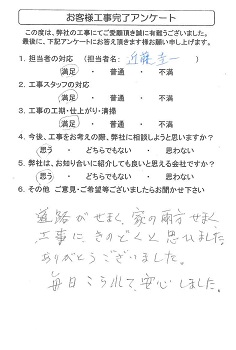 お客様工事完了アンケート
この度は、弊社の工事にてご愛顧頂き誠に有難うございました。
最後に、下記アンケートにお答え頂きます様お願い申し上げます。
1. 担当者の対応 (担当者名: 近藤 圭一 )
満足 ・ 普通 ・ 不満
2. 工事スタッフの対応
満足 ・ 普通 ・ 不満
3. 工事の工期・仕上がり・清掃
満足 ・ 普通 ・ 不満
4. 今後、工事をお考えの際、弊社に相談しようと思いますか?
思う ・ どちらでもない ・ 思わない
5. 弊社は、お知り合いに紹介しても良いと思える会社ですか?
思う ・ どちらでもない ・ 思わない
6. その他 ご意見・ご希望等ございましたらお聞かせ下さい
道路がせまく、家の両方せまく
工事にきのどくと思ひました
ありがとうございました。
毎日こられて、安心しました。